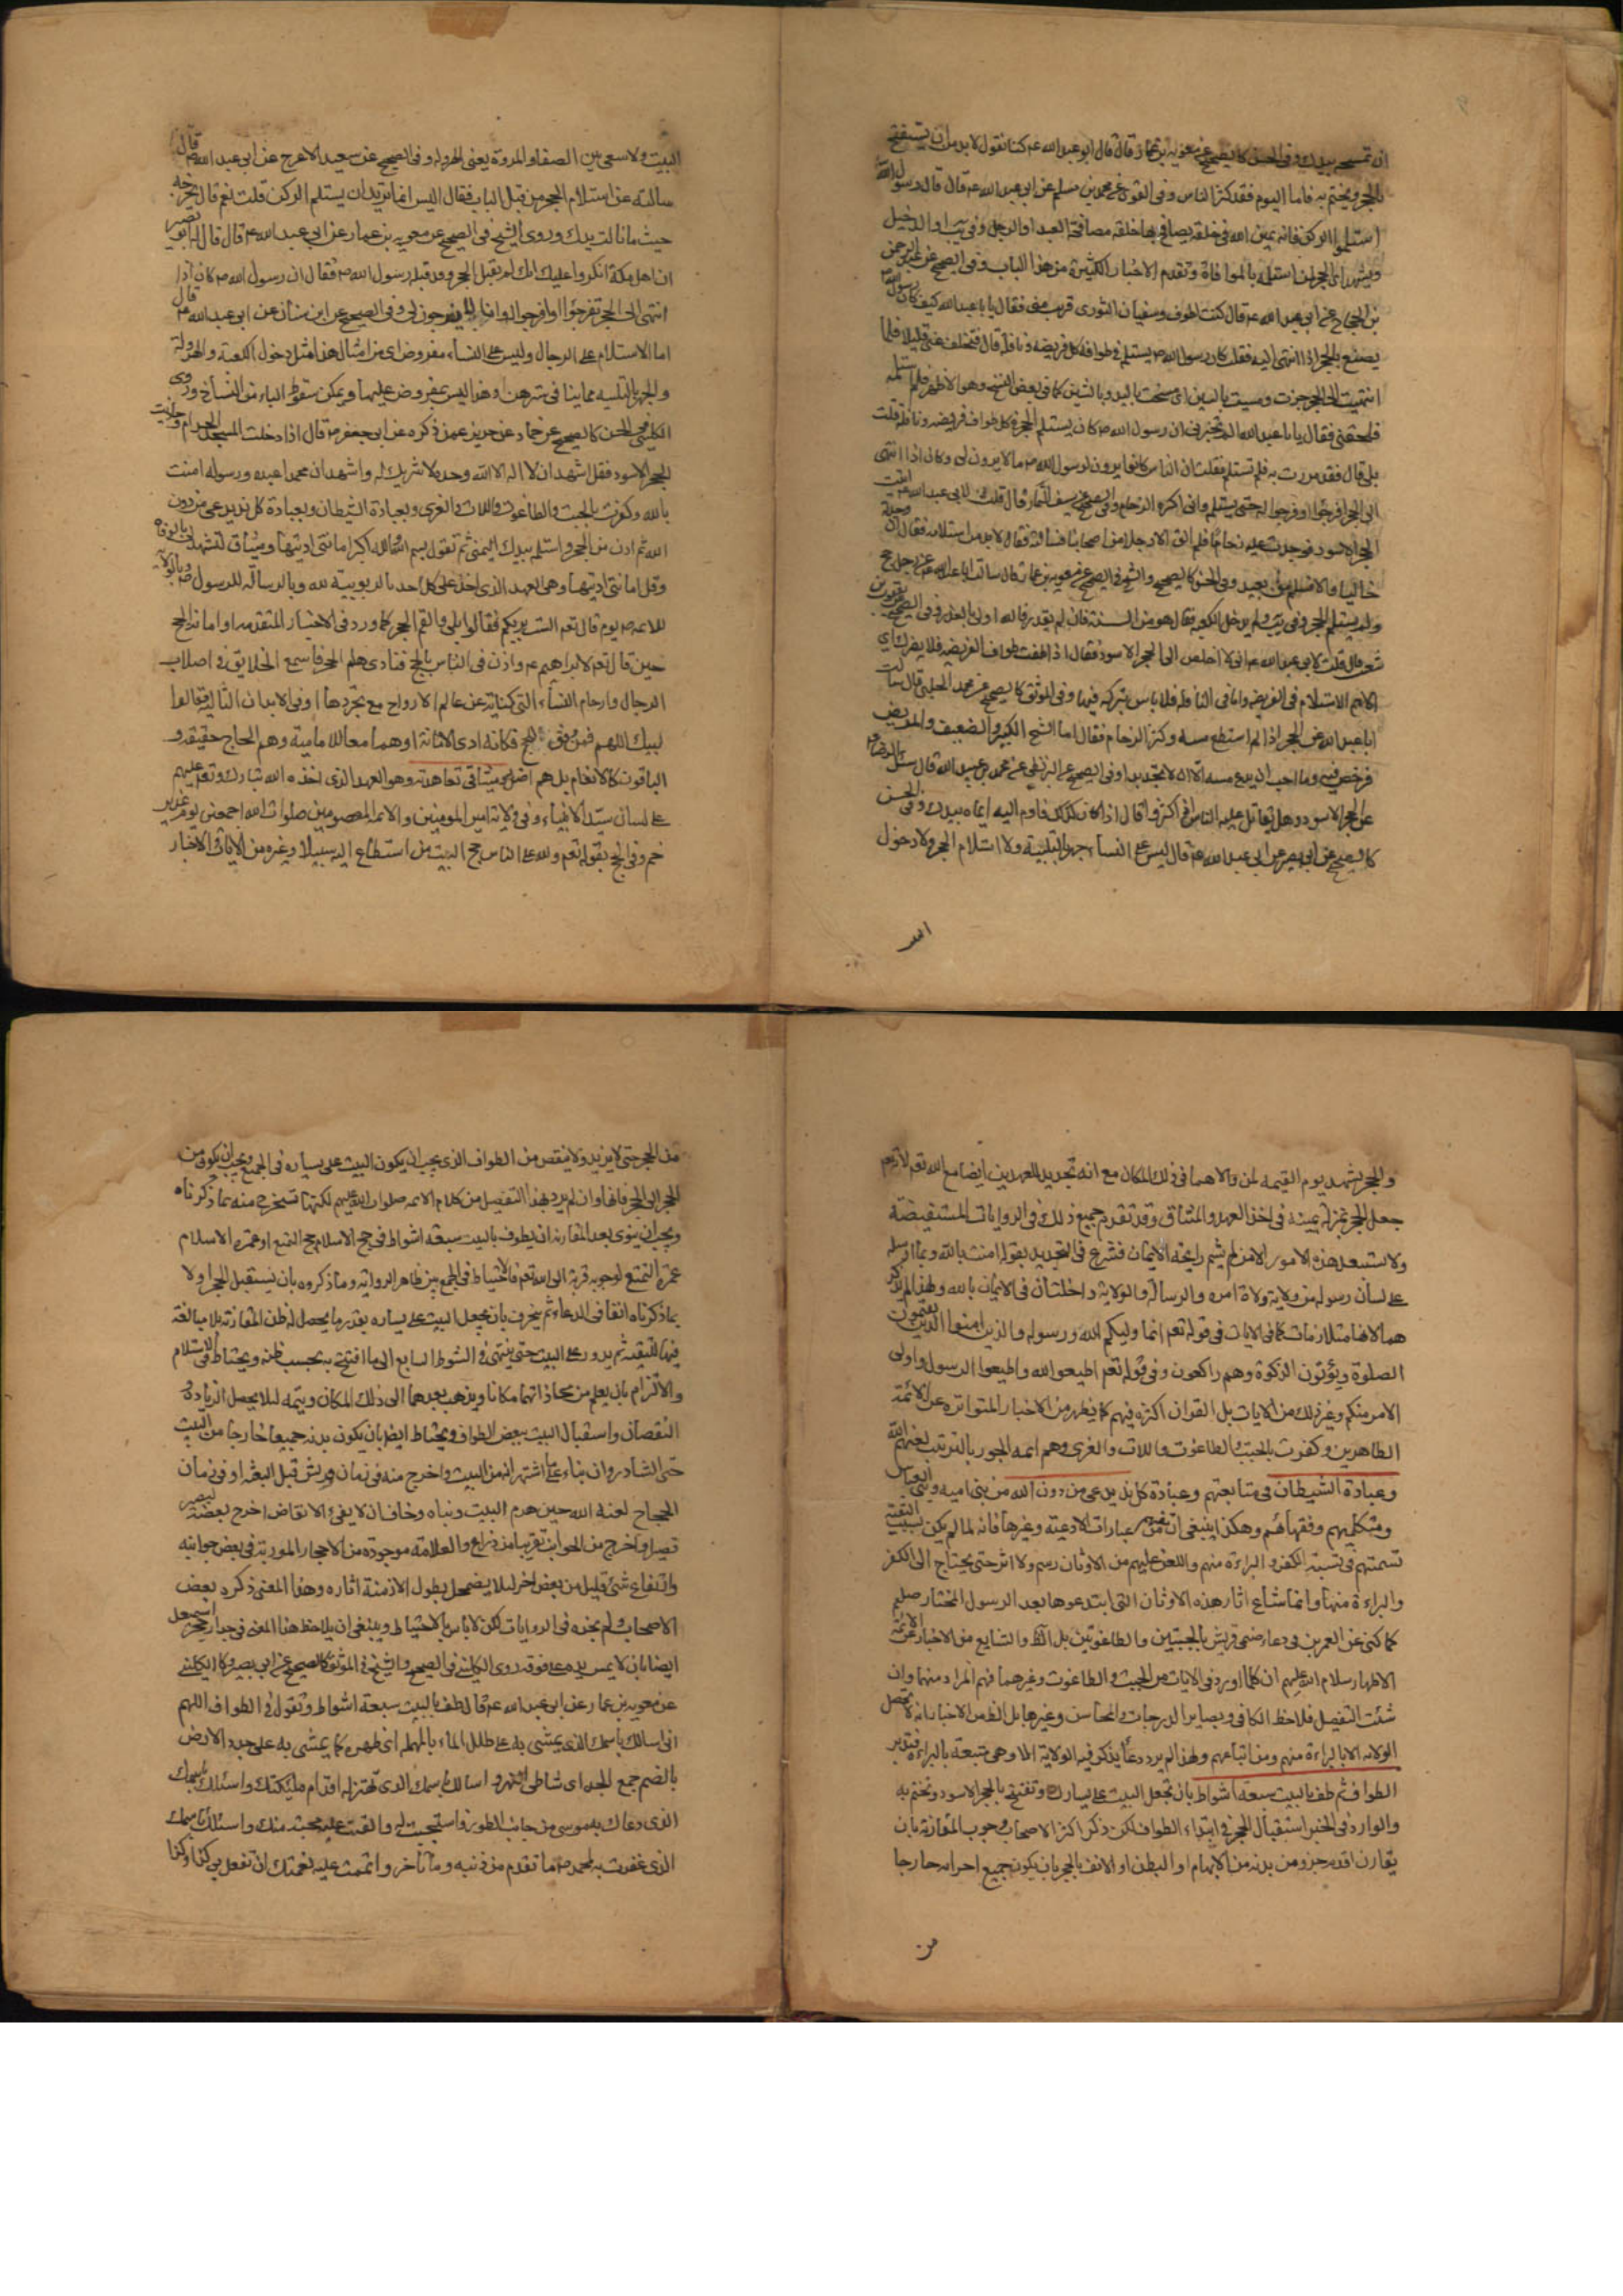 ان تمسحه بيدك وفى الحسن كالصحيح عن معوية بن عمار قال قال ابو عبد الله ع كنا نقول لابد من ان يستفتح
بالحجر ويختم به فاما اليوم فقد كثر الناس وفى القوى عن محمد بن مسلم عن ابى عبد الله ع قال قال رسول الله
استلموا الركن فانه يمين الله فى خلقه يصافح بها خلقه مصافحة العبد او الرجل وفى يب او الدخيل
ويشهد اى الحجر لمن استلمه بالموافاة وتقدم الاخبار الكثيرة من هذا الباب وفى الصحيح عن عبد الرحمن
بن الحجاج عن ابى عبد الله ع قال كنت اطوف وسفيان الثورى قريب منى فقال يا با عبد الله كيف كان رسول الله
يصنع بالحجر اذا انتهى اليه فقلت كان رسول الله ص يستلمه فى طواف كل فريضة ونافلة قال فتخلف عنى قليلا فلما
انتهيت الى الحجر جزت ومسيت بالسين اى مسحت باليد وبالشين كما فى بعض النسخ وهو الاظهر فلم استلمه
فلحقنى فقال يا با عبد الله الم تخبرنى ان رسول الله ص كان يستلم الحجر فى كل طواف فريضة ونافلة قلت
بلى قال فقد مررت به فلم تستلم فقلت ان الناس كانوا يرون لرسول الله ص ما لا يرون لى وكان اذا انتهى
الى الحجر افرجوا له حتى يستلمه وانى اكره الزحام وفى الصحيح عن سيف التمار قال قلت لابى عبد الله ع اتيت
الحجر الاسود فوجدت عليه زحاما فلم الق الا رجلا من اصحابنا فسألته فقال لابد من استلامه فقال ان وجدته
خاليا والا فسلم من بعيد وفى الحسن كالصحيح والشيخ فى الصحيح عن معوية بن عمار قال سالت ابا عبد الله ع عن رجل حج
ولم يستلم الحجر وفى يب ولم يدخل الكعبة فقال هو من السنة فان لم يقدر فالله اولى بالعذر وفى الصحيح عن يعقوب بن
شعيب قال قلت لابى عبد الله ع انى لا اخلص الى الحجر الاسود فقال اذا طفت طواف الفريضة فلا يضرك اى
الاهم الاستلام فى الفريضة واما فى النافلة فلا باس بتركه فيها وفى الموثق كالصحيح عن محمد الحلبى قال سالت
ابا عبد الله عن الحجر اذا لم استطع مسه وكثر الزحام فقال اما الشيخ الكبير والضعيف والمريض
فرخص فيه وما احب ان يدع مسه الا ان لا تجد بدا وفى الصحيح عن البزنطى عن محمد بن عبيد الله قال سئل الرضا ع
عن الحجر الاسود وهل يقاتل عليه الناس اذا كثروا قال اذا كان كذلك فاوم اليه ايماء بيدك وفى الحسن
كالصحيح عن ابى بصير عن ابى عبد الله ع قال ليس على النساء جهر بالتلبية ولا استلام الحجر ولا دخول
البيت
البيت ولا سعى بين الصفا والمروة يعنى الهرولة وفى الصحيح عن سعيد الاعرج عن ابى عبد الله ع قال
سالته عن استلام الحجر من قبل الباب فقال اليس انما تريد ان يستلم الركن قلت نعم قال يجزيه
حيث ما نالت يدك وروى الشيخ فى الصحيح عن معوية بن عمار عن ابى عبد الله ع قال قال له ابو بصير
ان اهل مكة انكروا عليك انك لم تقبل الحجر وقد قبله رسول الله ص فقال ان رسول الله ص كان اذا
انتهى الى الحجر تفرجوا له وانا لا يفرجون لى وفى الصحيح عن ابن سنان عن ابى عبد الله ع قال
اما الاستلام على الرجال وليس على النساء مفروض اى من امثال هذا مثل دخول الكعبة والهرولة
والجهر بالتلبيه مما ينافى سترهن وهذا ليس بمفروض عليها ويمكن سقوط الباء من النساخ وروى
الكلينى فى الحسن كالصحيح عن حماد عن حريز عمن ذكره عن ابى جعفر ع قال اذا دخلت المسجد الحرام وحاذيت
الحجر الاسود فقل اشهد ان لا اله الا الله وحده لا شريك له واشهد ان محمدا عبده ورسوله امنت
بالله وكفرت بالجبت والطاغوت واللات والعزى وبعبادة الشيطان وبعبادة كل ند يدعى من دون
الله ثم ادن من الحجر واستلمه بيدك اليمنى ثم تقول بسم الله والله اكبر امانتى اديتها وميثاقى لتشهد لى بالموافاة
وقل امانتى اديتها وهى العهد الذى اخذ على كل احد بالربوبية لله وبالرسالة للرسول ص وبالولاية
للائمه ص يوم قال تعم الست بربكم فقالوا بلى والقم الحجر كما ورد فى الاخبار المتقدمه او امانة الحج
حين قال تعم لابراهيم ع واذن فى الناس بالحج فنادى هلم الحج فاسمع الخلايق فى اصلاب
الرجال وارحام النساء التى كناية عن عالم الارواح مع تجردها او فى الابدان الثالية فقالوا
لبيك اللهم فمن وفق للحج فكانه ادى الامانة او هما معا للامانية وهم الحاج حقيقة و
الباقون كالانعام بل هم اضل وميثاقى تعاهدته وهو العهد الذى اخذه الله تبارك وتعم عليهم
على لسان سيد الانبياء وفى ولاية امير المومنين والائمه المعصومين صلوات الله اجمعين يوم غدير
خم وفى الحج بقوله تعم ولله على الناس حج البيت من استطاع اليه سبيلا وغيره من الايات والاخبار
والحجر يشهد يوم القيمه لمن والاهما فى ذلك المكان مع انه تجديد للعهدين ايضا مع الله تعم لانه تعم
جعل الحجر بمنزلة يمينه فى اخذ العهد والميثاق وقد تقدم جميع ذلك فى الروايات المستفيضة
ولا يستبعد هذه الامور الا من لم يشم رايحة الايمان فشرع فى التجديد بقوله امنت بالله وبما ارسله
على لسان رسوله من ولاية ولاة امره والرسالة والولاية داخلتان فى الايمان بالله ولهذا لم يذكر
هما لانهما متلازمات كما فى الايات فى قوله تعم انما وليكم الله ورسوله والذين امنوا الذين يقيمون
الصلوة ويؤتون الزكوة وهم راكعون وفى قوله تعم اطيعوا الله واطيعوا الرسول واولى
الامر منكم وغير ذلك من الايات بل القران اكثره فيهم كما يظهر من الاخبار المتواتره عن الائمة
الطاهرين وكفرت بالجبت والطاغوت واللات والعزى وهم ائمه الجور بالترتيب لعنهم الله
وعبادة الشيطان فى متابعتهم وعبادة كل ند يدعى من دون الله من بنى اميه وبنى العباس
ومتكلميهم وفقهائهم وهكذا ينبغى ان تفهم عبارات الادعية وغيرها فانه لما لم يكن بسبب التقية
تسميتهم فى نسبة الكفر والبراءة منهم واللعن عليهم من الاوثان رسم ولا اثر حتى يحتاج الى الكفر
والبراءة منها وانما شاع اثار هذه الاوثان التى ابتدعوها بعد الرسول المختار صلعم
كما كنى عن العمرين فى دعاء صنمى قريش بالجبتين والطاغوتين بل الظ والشايع من الاخبار عن الائمة
الاطهار سلام الله عليهم ان كلما ورد فى الايات من الجبت والطاغوت وغيرهما فهم المراد منهما وان
شئت التفصيل فلاحظ الكافى وبصاير الدرجات والمحاسن وغيرها بل الظ من الاخبار انه لا تحصل
الولاية الا بالبراءة منهم ومن اتباعهم ولهذا لم يرد دعاء يذكر فيه الولاية الا وهى متبعة بالبراءة فتدبر
الطواف ثم طف بالبيت سبعة اشواط بان تجعل البيت على يسارك وتفتتح بالحجر الاسود وتختم به
والوارد فى الخبر استقبال الحجر فى ابتداء الطواف لكن ذكر اكثر الاصحاب وجوب المقارنة بان
يقارن اقدم جزو من بدنه من الابهام او البطن او الانف بالحجر بان يكون جميع اجزائه خارجا
من
من الحجر حتى لا يزيد ولا ينقص من الطواف الذى يجب ان يكون البيت على يساره فى الجميع ويجب ان يكون من
الحجر الى الحجر فانها وان لم يرد بهذا التفصيل من كلام الائمه صلوات الله عليهم لكنها تستخرج منه بما ذكرناه
ويجب ان ينوى بعد المقارنة ان يطوف بالبيت سبعة اشواط فى حج الاسلام حج التمتع او عمرة الاسلام
عمرة التمتع لوجوبه قربة الى الله تعم فالاحتياط فى الجمع بين ظاهر الرواية وما ذكروه بان يستقبل الحجر اولا
بما ذكرناه انفا فى الدعاء ثم ينحرف بان يجعل البيت على يساره بقدر ما يحصل له ظن المقارنة بلا مبالغة
فيها للتقية ثم يدور على البيت حتى ينتهى فى الشوط السابع الى ما افتتح به بحسب ظنه ويحتاط فى الاستلام
والالتزام بان يعلم من محاذاتهما مكانا ويذهب بعدهما الى ذلك المكان ويتمه لئلا يحصل الزيادة و
النقصان واستقبال البيت ببعض الطواف ويحتاط ايضا بان يكون بدنه جميعا خارجا من البيت
حتى الشاذروان بناء على ما اشتهر انه من البيت واخرج منه فى زمان قريش قبل البعثة او فى زمان
الحجاج لعنه الله حين هدم البيت وبناه وخاف ان لا يفى الانقاض اخرج بعضه ليصير
قصيرا واخرج من الجوانب قريبا من ذراع والعلامة موجودة من الاحجار المورية فى بعض جوانبه
وارتفاع شئ قليل من بعض اخر لئلا يضمحل بطول الازمنة اثاره وهذا المعنى ذكره بعض
الاصحاب ولم نجده فى الروايات لكن لا باس بالاحتياط وينبغى ان يلاحظ هذا المعنى فى جدار حجر اسمعيل
ايضا بان لا يمس يده على فوقه روى الكلينى فى الصحيح والشيخ فى الموثق كالصحيح عن ابى بصير والكلينى
عن معوية بن عمار عن ابى عبد الله ع قال طف بالبيت سبعة اشواط وتقول فى الطواف اللهم
انى اسالك باسمك الذى يمشى به على طلل الماء بالمهمله اى ظهره كما يمشى به على جدد الارض
بالضم جمع الجده اى شاطى النهر واسالك باسمك الذى تهتز له اقدام مليكتك واسئلك باسمك
الذى دعاك به موسى من جانب الطور فاستجبت له والقيت عليه محبة منك واسئلك باسمك
الذى غفرت به لمحمد ص ما تقدم من ذنبه وما تأخر واتممت عليه نعمتك ان تفعل بى كذا وكذا